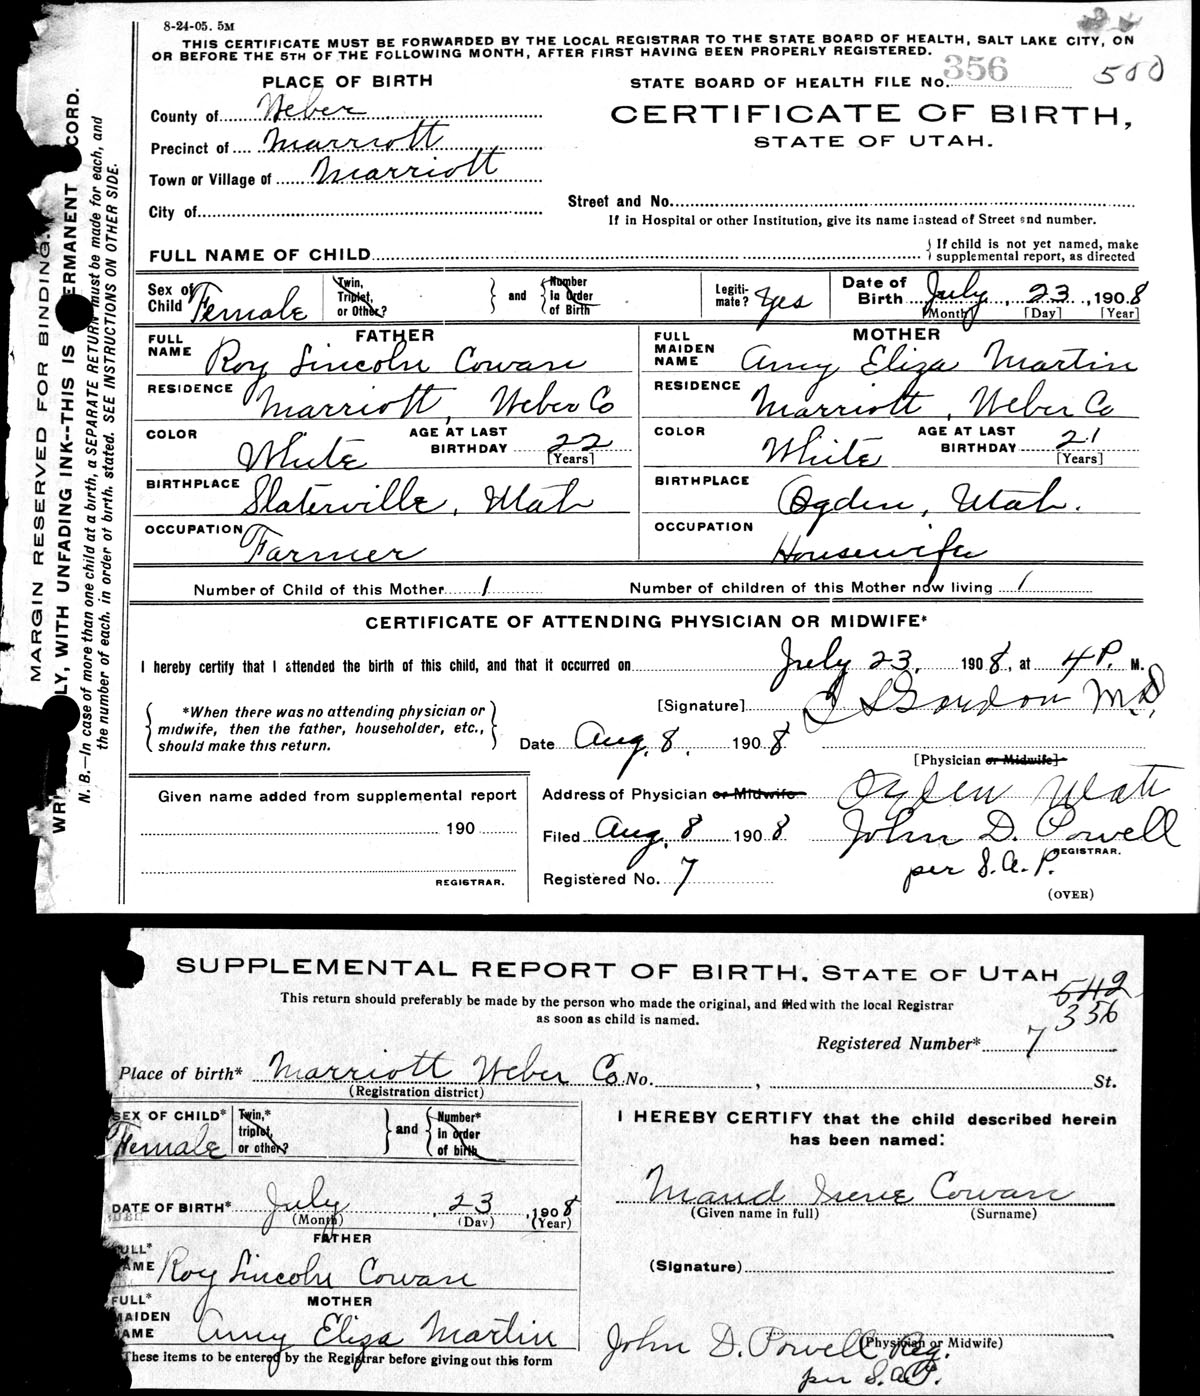 8-24-05. 5M
THIS CERTIFICATE MUST BE FORWARDED BY THE LOCAL REGISTRAR TO THE STATE BOARD OF HEALTH, SALT LAKE CITY, ON
OR BEFORE THE 5TH OF THE FOLLOWING MONTH, AFTER FIRST HAVING BEEN PROPERLY REGISTERED.
PLACE OF BIRTH
STATE BOARD OF HEALTH FILE No. 356 500
County of Weber
CERTIFICATE OF BIRTH,
Precinct of Marriott
STATE OF UTAH.
Town or Village of Marriott
City of
Street and No.
If in Hospital or other Institution, give its name instead of Street and number.
FULL NAME OF CHILD
If child is not yet named, make
supplemental report, as directed
Sex of Child Female
Twin, Triplet, or Other? and Number in Order of Birth
Legitimate? Yes
Date of Birth July 23, 1908
[Month] [Day] [Year]
FATHER
FULL NAME Roy Lincoln Cowan
RESIDENCE Marriott, Weber Co
COLOR White
AGE AT LAST BIRTHDAY 22
[Years]
BIRTHPLACE Slaterville, Utah
OCCUPATION Farmer
MOTHER
FULL MAIDEN NAME Amy Eliza Martin
RESIDENCE Marriott, Weber Co
COLOR White
AGE AT LAST BIRTHDAY 21
[Years]
BIRTHPLACE Ogden, Utah.
OCCUPATION Housewife
Number of Child of this Mother 1
Number of children of this Mother now living 1
CERTIFICATE OF ATTENDING PHYSICIAN OR MIDWIFE*
I hereby certify that I attended the birth of this child, and that it occurred on July 23, 1908, at 4 P. M.
*When there was no attending physician or
midwife, then the father, householder, etc.,
should make this return.
[Signature] Gordon M.D.
Date Aug. 8, 1908.
[Physician or Midwife]
Given name added from supplemental report
190
REGISTRAR.
Address of Physician or Midwife Ogden Utah
Filed Aug. 8 1908 John D. Powell
REGISTRAR.
per S.A.P.
Registered No. 7
(OVER)
MARGIN RESERVED FOR BINDING.
LY, WITH UNFADING INK--THIS IS ERMANENT CORD.
N. B.—In case of more than one child at a birth, a SEPARATE RETURN must be made for each, and
the number of each, in order of birth, stated. SEE INSTRUCTIONS ON OTHER SIDE.
SUPPLEMENTAL REPORT OF BIRTH, STATE OF UTAH
542
This return should preferably be made by the person who made the original, and filed with the local Registrar
as soon as child is named.
356
Registered Number* 7
Place of birth* Marriott Weber Co. No. , St.
(Registration district)
SEX OF CHILD* Female
Twin,* triplet, or other? and Number* in order of birth
DATE OF BIRTH* July, 23, 1908
(Month) (Day) (Year)
FATHER
FULL* NAME Roy Lincoln Cowan
MOTHER
FULL* MAIDEN NAME Amy Eliza Martin
These items to be entered by the Registrar before giving out this form
I HEREBY CERTIFY that the child described herein
has been named:
Maud Irene Cowan
(Given name in full) (Surname)
(Signature)
John D. Powell Reg.
(Physician or Midwife)
per S.A.P.